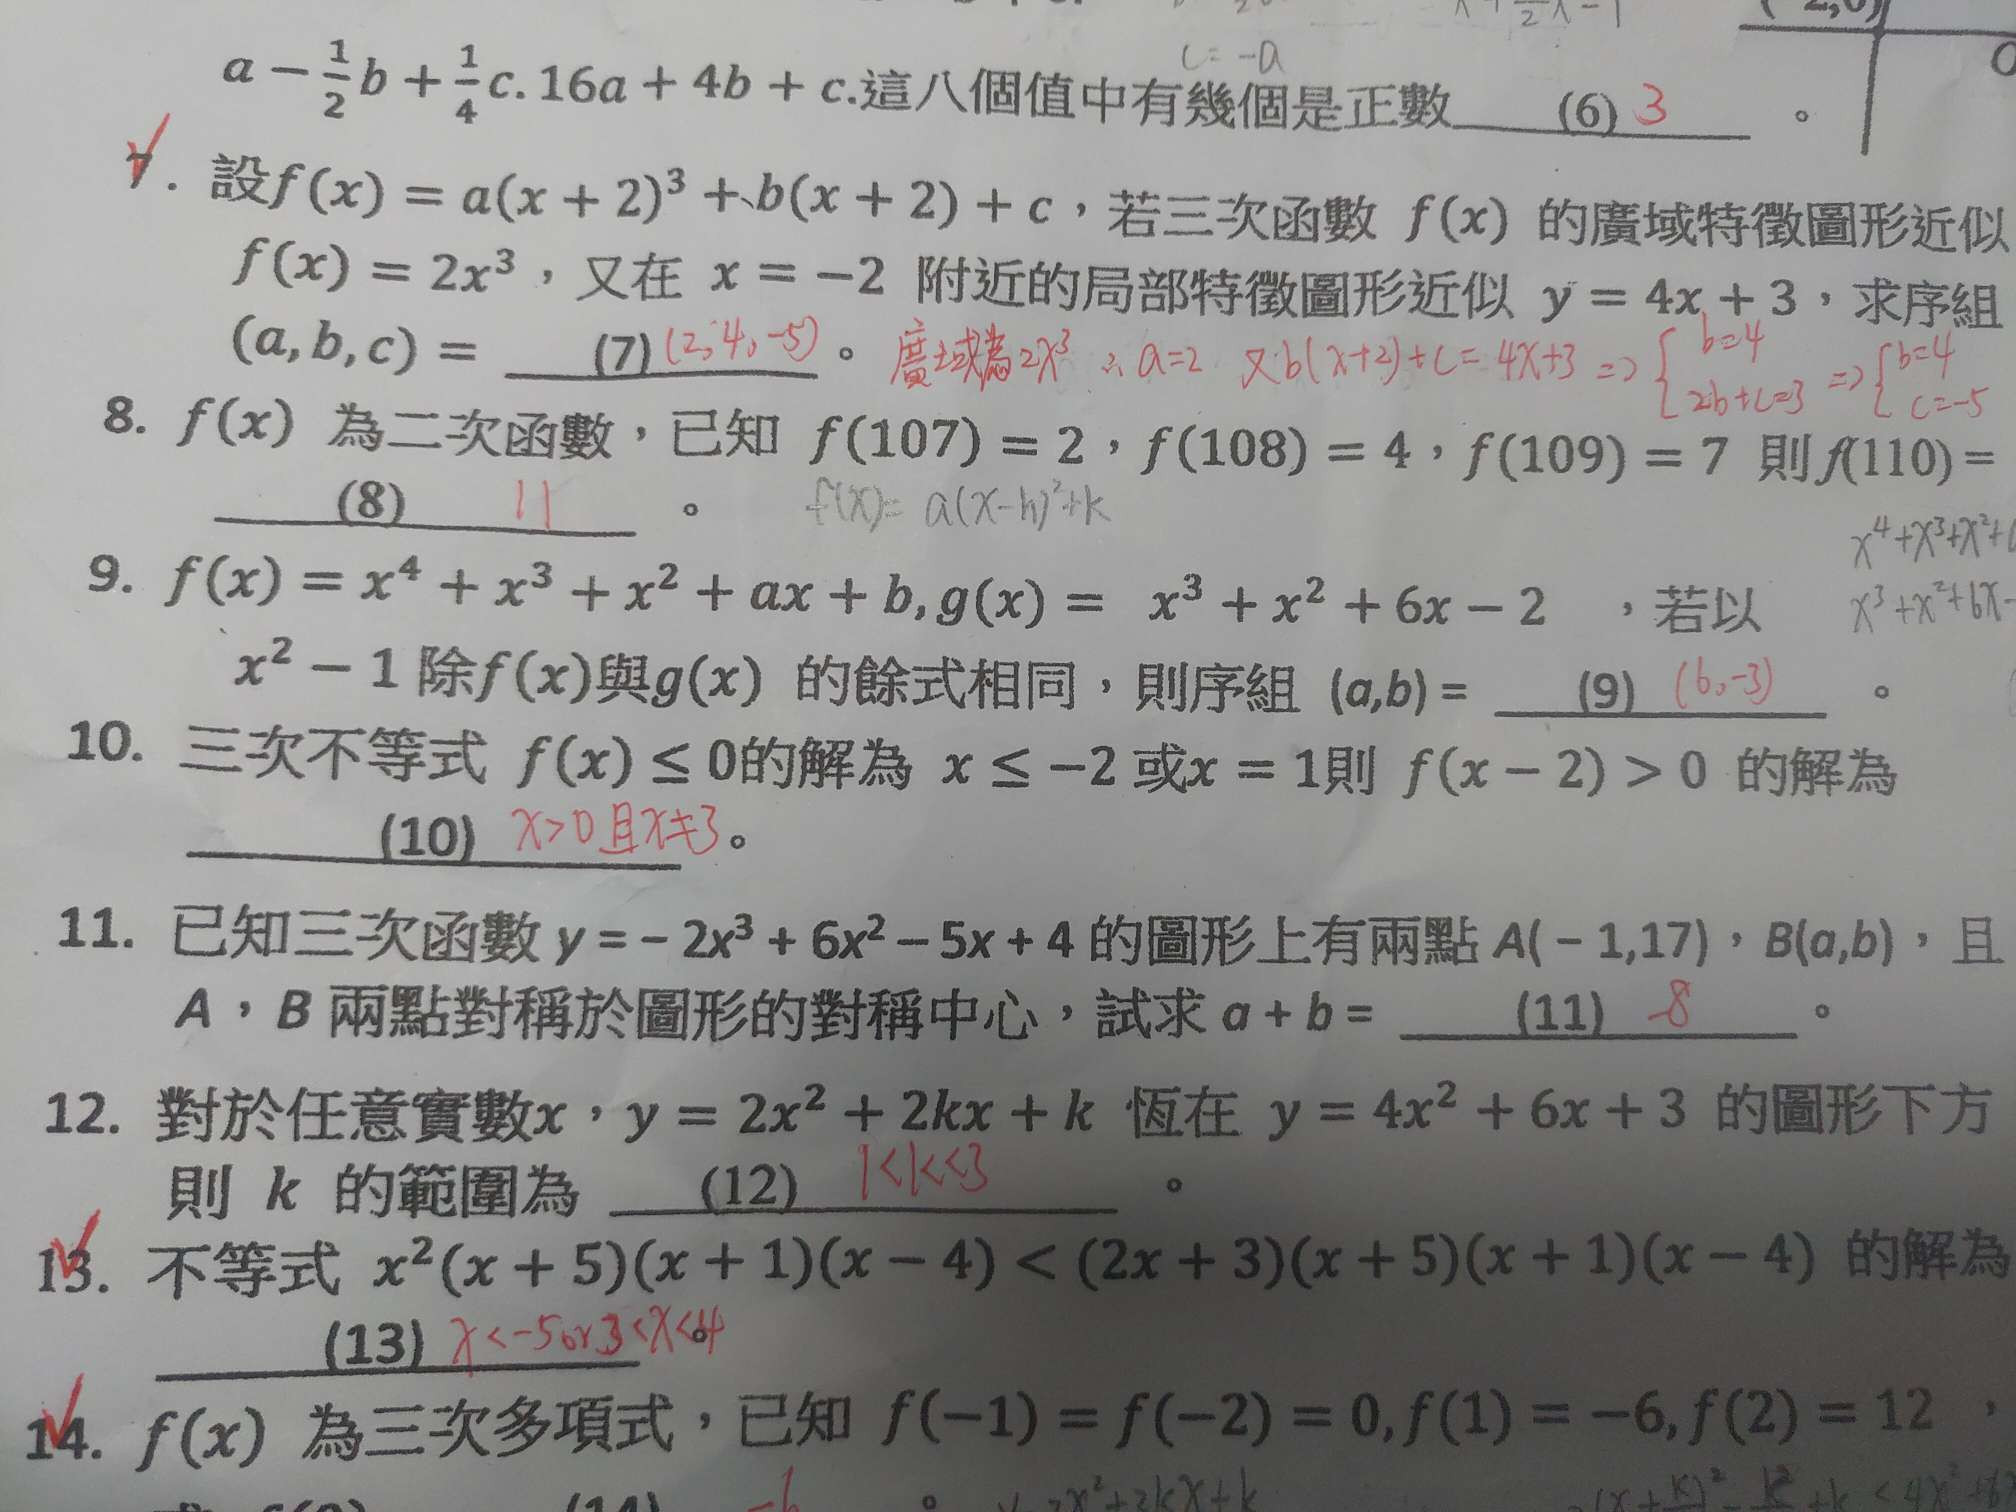 c = -a
a − 1/2 b + 1/4 c. 16a + 4b + c.這八個值中有幾個是正數 (6) 3 。
7. 設f(x) = a(x + 2)³ + b(x + 2) + c，若三次函數 f(x) 的廣域特徵圖形近似
f(x) = 2x³，又在 x = −2 附近的局部特徵圖形近似 y = 4x + 3，求序組
(a, b, c) = (7) (2, 4, -5) 。 廣域為2x³ ∴ a=2 又b(x+2)+c = 4x+3 => { b=4 2b+c=3 => { b=4 c=-5
8. f(x) 為二次函數，已知 f(107) = 2，f(108) = 4，f(109) = 7 則 f(110) =
(8) 11 。 f(x)= a(x-h)²+k
x⁴+x³+x²+
9. f(x) = x⁴ + x³ + x² + ax + b, g(x) = x³ + x² + 6x − 2 ，若以 x³+x²+6x-
x² − 1 除f(x)與g(x) 的餘式相同，則序組 (a,b) = (9) (6, -3) 。
10. 三次不等式 f(x) ≤ 0的解為 x ≤ −2 或x = 1則 f(x − 2) > 0 的解為
(10) x>0 且x≠3。
11. 已知三次函數 y = – 2x³ + 6x² – 5x + 4 的圖形上有兩點 A( – 1,17)，B(a,b)，且
A，B 兩點對稱於圖形的對稱中心，試求 a + b = (11) -8 。
12. 對於任意實數x，y = 2x² + 2kx + k 恆在 y = 4x² + 6x + 3 的圖形下方
則 k 的範圍為 (12) 1<k<3 。
13. 不等式 x²(x + 5)(x + 1)(x − 4) < (2x + 3)(x + 5)(x + 1)(x − 4) 的解為
(13) x<-5 or 3<x<4 。
14. f(x) 為三次多項式，已知 f(−1) = f(−2) = 0, f(1) = −6, f(2) = 12，
(14) -6 。